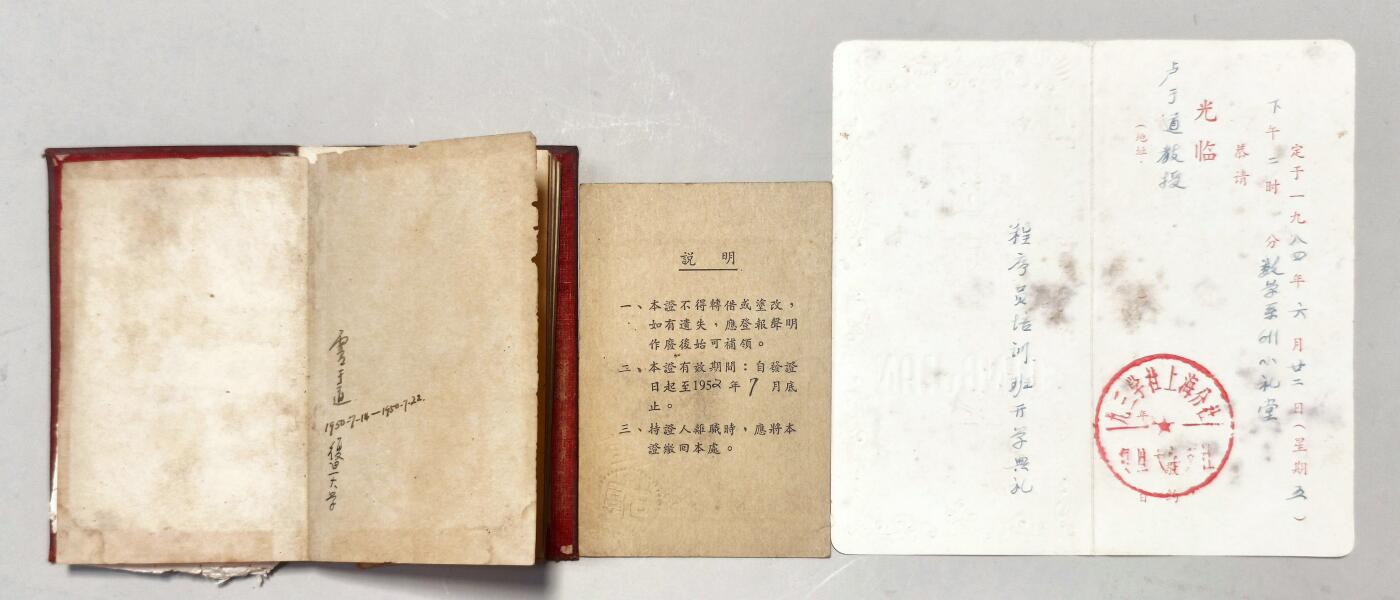 盧于道
1950-7-14—1950-7-22.
復旦大学
説明
一、本證不得轉借或塗改，
如有遺失，應登報聲明
作廢後始可補領。
二、本證有效期間：自發證
日起至1952年7月底
止。
三、持證人離職時，應將本
證繳回本處。
定于一九八四年六月廿二日（星期五）
下午二时 分数学系 小礼堂
恭请
光临
卢于道教授
（地址：
程序员培训班开学典礼
九三学社上海分社
年